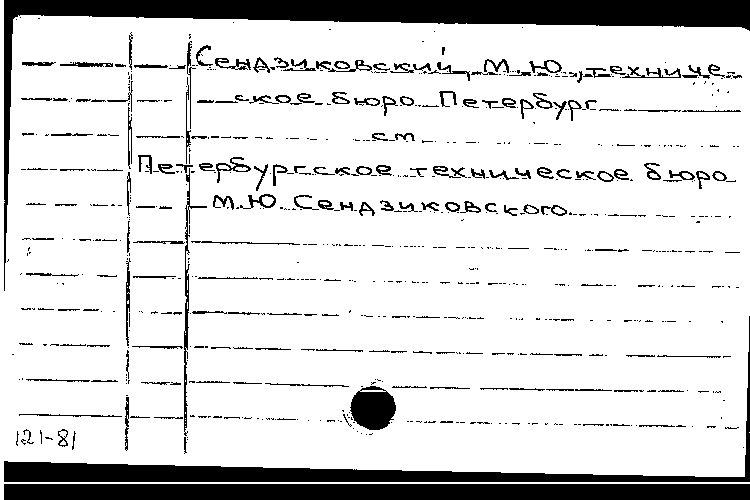 Сендзиковский, М.Ю., техниче-
ское бюро Петербург
см.
Петербургское техническое бюро
М.Ю. Сендзиковского
121-81